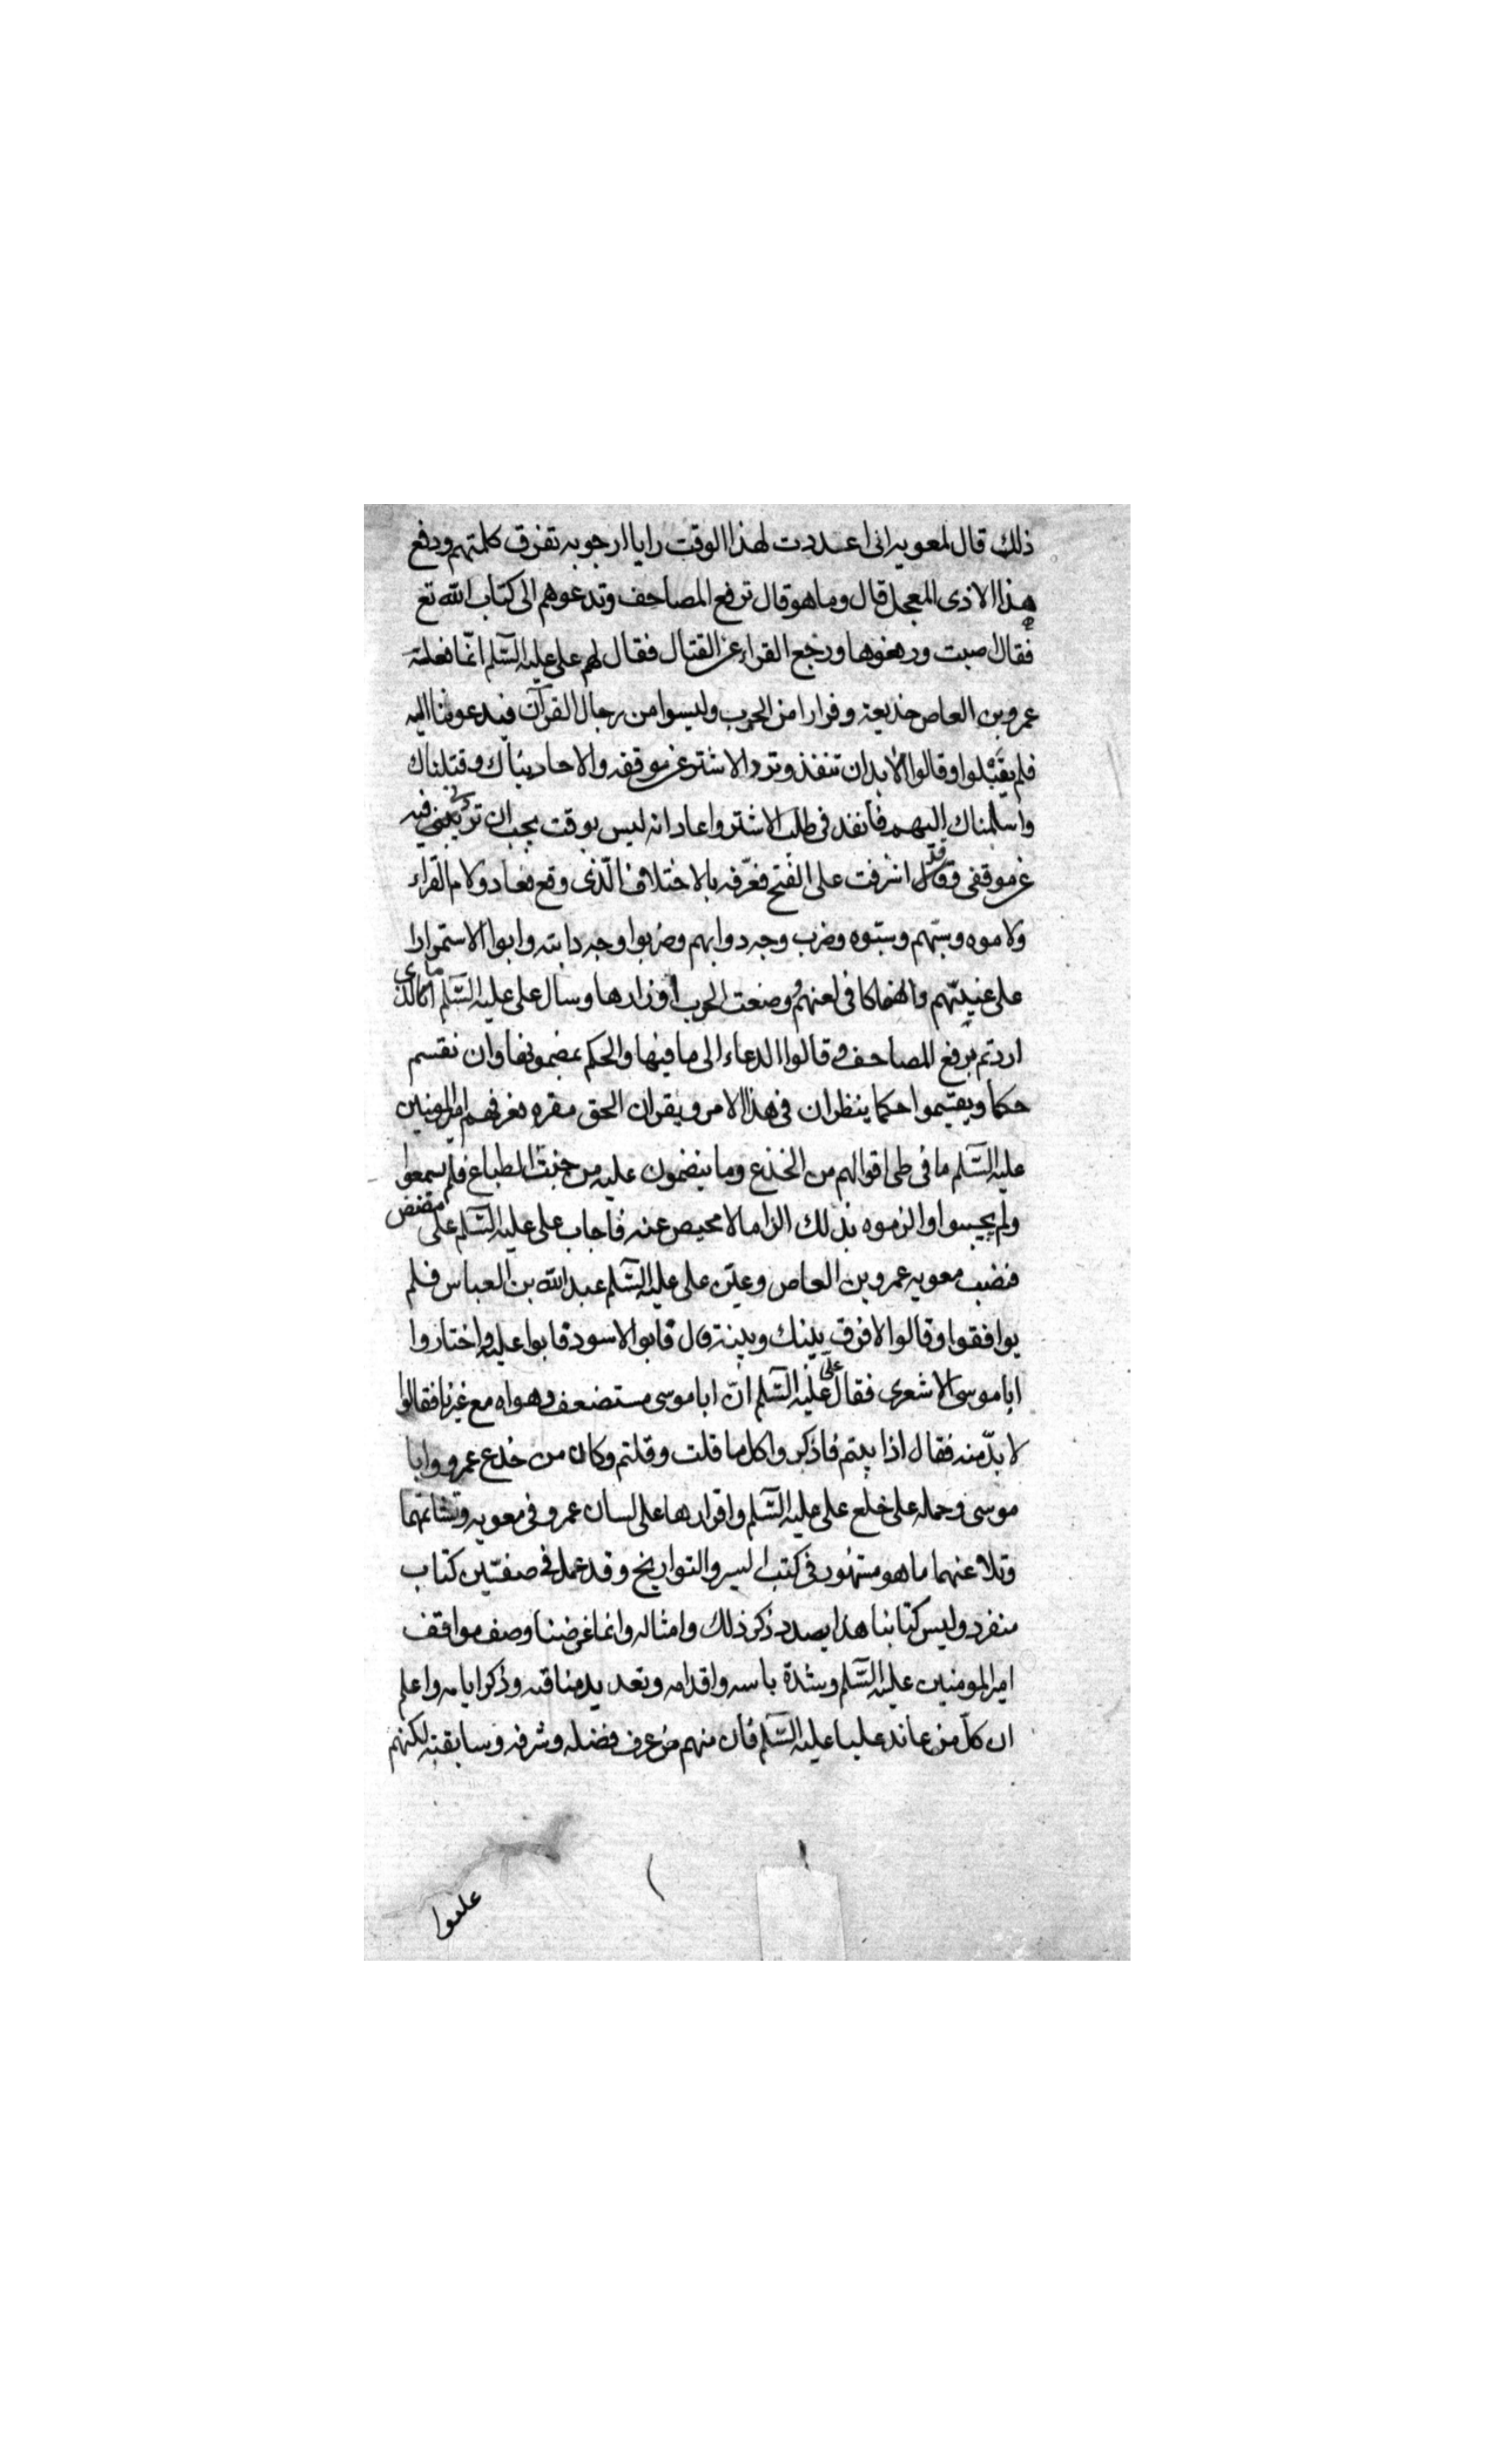 ذلك قال لمعويه انى اعددت لهذا الوقت رايا ارجو به تفرق كلمتهم ودفع
هذا الاذى المعجل قال وما هو قال ترفع المصاحف وتدعوهم الى كتاب الله تع
فقال اصبت ورفعوها ورجع القراء عن القتال فقال لهم على عليه السّلم انّما فعلته
عمرو بن العاص خديعة وفرارا من الحرب وليسوا من رجال القرآن فيدعوننا اليه
فلم يقبلوا وقالوا لا بد ان تنفذ وترد الاشتر عن موقفه والا حاربناك وقتلناك
واسلمناك اليهم فانفذ فى طلب الاشتر واعاد انه ليس بوقت يجب ان تزيلنى فيه
عن موقفى وقد اشرفت على الفتح فعرّفه بالاختلاف الّذى وقع فعاد ولام القراء
ولاموه وسبّهم وسبّوه وضرب وجه دوابهم وضربوا وجه دابته وابوا الا استمرارا
على غيّهم وانهماكا فى لعنهم ووضعت الحرب اوزارها وسال على عليه السّلم ما الذى
اردتم برفع المصاحف قالوا الدعاء الى ما فيها والحكم بمضمونها وان نقسم
حكما ويقيموا حكما ينظران فى هذا الامر ويقران الحق مقره فعرفهم امير المومنين
عليه السّلم ما فى طى اقوالهم من الخدع وما ينضمون عليه من خبث الطباع فلم يسمعوا
ولم يجيبوا والزموه بذلك الزاما لا محيص عنه فاجاب على عليه السّلم على مضض
فنصب معويه عمرو بن العاص وعيّن على عليه السّلم عبد الله بن العباس فلم
يوافقوا وقالوا لا فرق بينك وبينه قال فابو الاسود فابوا عليه واختاروا
ابا موسى الاشعرى فقال على عليه السّلم انّ ابا موسى مستضعف وهواه مع غيرنا فقالوا
لا بدّ منه فقال اذا بيتم فاذكروا كل ما قلت وقلتم وكان من خدع عمرو وابا
موسى وحمله على خلع على عليه السّلم واقرارها على لسان عمرو فى معويه وتشاتمهما
وتلاعنهما ما هو مشهور فى كتب السير والتواريخ وقد عمل فى صفيّن كتاب
منفرد وليس كتابنا هذا بصدد ذكر ذلك وامثاله وانما غرضنا وصف مواقف
امير المومنين عليه السّلم وشدة باسه واقدامه وتعديد مناقبه وذكر ايامه واعلم
ان كلّ من عاند عليا عليه السّلم فان منهم من عرف فضله وشرفه وسابقته لكنهم